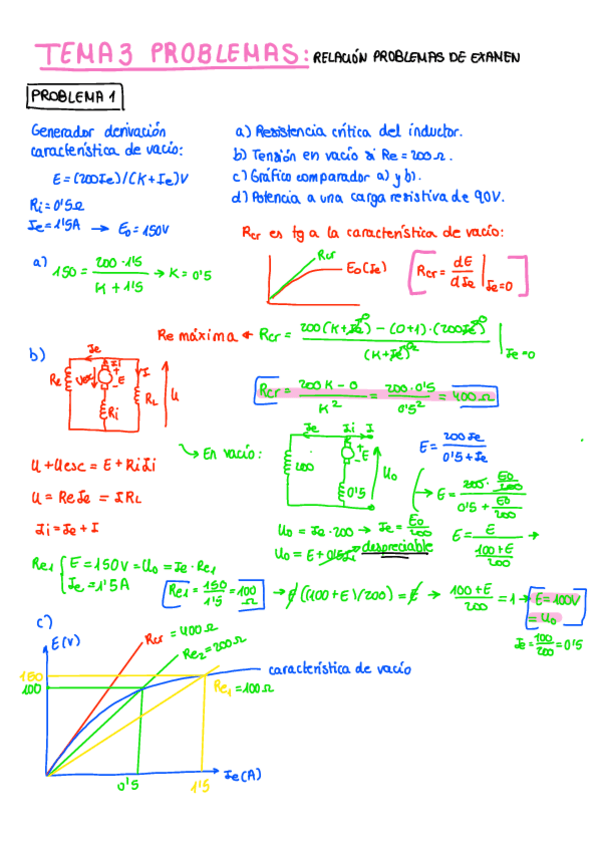 TEMA 3 PROBLEMAS: RELACIÓN PROBLEMAS DE EXAMEN
PROBLEMA 1
Generador derivación
característica de vacío:
E = (200Ie)/(K+Ie)V
Ri = 0'5Ω
Ie = 1'5A → E0 = 150V
a) Resistencia crítica del inductor.
b) Tensión en vacío si Re = 200Ω.
c) Gráfico comparador a) y b).
d) Potencia a una carga resistiva de 90V.
Rcr es tg a la característica de vacío:
a) 150 = 200·1'5 / K+1'5 → K = 0'5
Rcr
E0(Ie)
[Rcr = dE/dIe | Ie=0]
Re máxima ← Rcr = 200(K+Ie) - (0+1)·(200Ie) / (K+Ie)² | Ie=0
0
0
0
Rcr = 200K - 0 / K² = 200·0'5 / 0'5² = 400Ω
b)
Ie
Re
Uesc
Ii
+
-
E
Ri
I
RL
U
U + Uesc = E + RiIi
U = ReIe = IRL
Ii = Ie + I
→ En vacío:
Ie
Ii
I
200
+
-
E
0'5
U0
E = 200Ie / 0'5+Ie
→ E = 200· E0/200 / 0'5 + E0/200
E = E / 100+E/200 →
U0 = Ie·200 → Ie = E0/200
U0 = E + 0'5Ii → despreciable
Re1 { E = 150V = U0 = Ie·Re1
Ie = 1'5A
Re1 = 150/1'5 = 100Ω
→ E/((100+E)/(200)) = E → 100+E / 200 = 1 → E = 100V
= U0
Ie = 100/200 = 0'5
c)
E(V)
Rcr = 400Ω
Re2 = 200Ω
característica de vacío
150
100
Re1 = 100Ω
0'5
1'5
Ie(A)